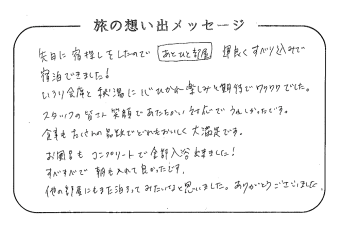 旅の想い出メッセージ
矢日に宿探しをしたので あとひと部屋 運良くすべり込みで
宿泊できました!
いろり会席と秋湯に心ひかれ楽しみと期待でワクワクでした。
スタッフの皆さん笑顔であたたかい対応でうれしかったです。
食事もたくさんの品数でどれもおいしく大満足です。
お風呂もコンプリートで全部入浴出来ました!
すべすべで 朝も入れて良かったです。
他の部屋にもまた泊まってみたいなと思いました。ありがとうございました。